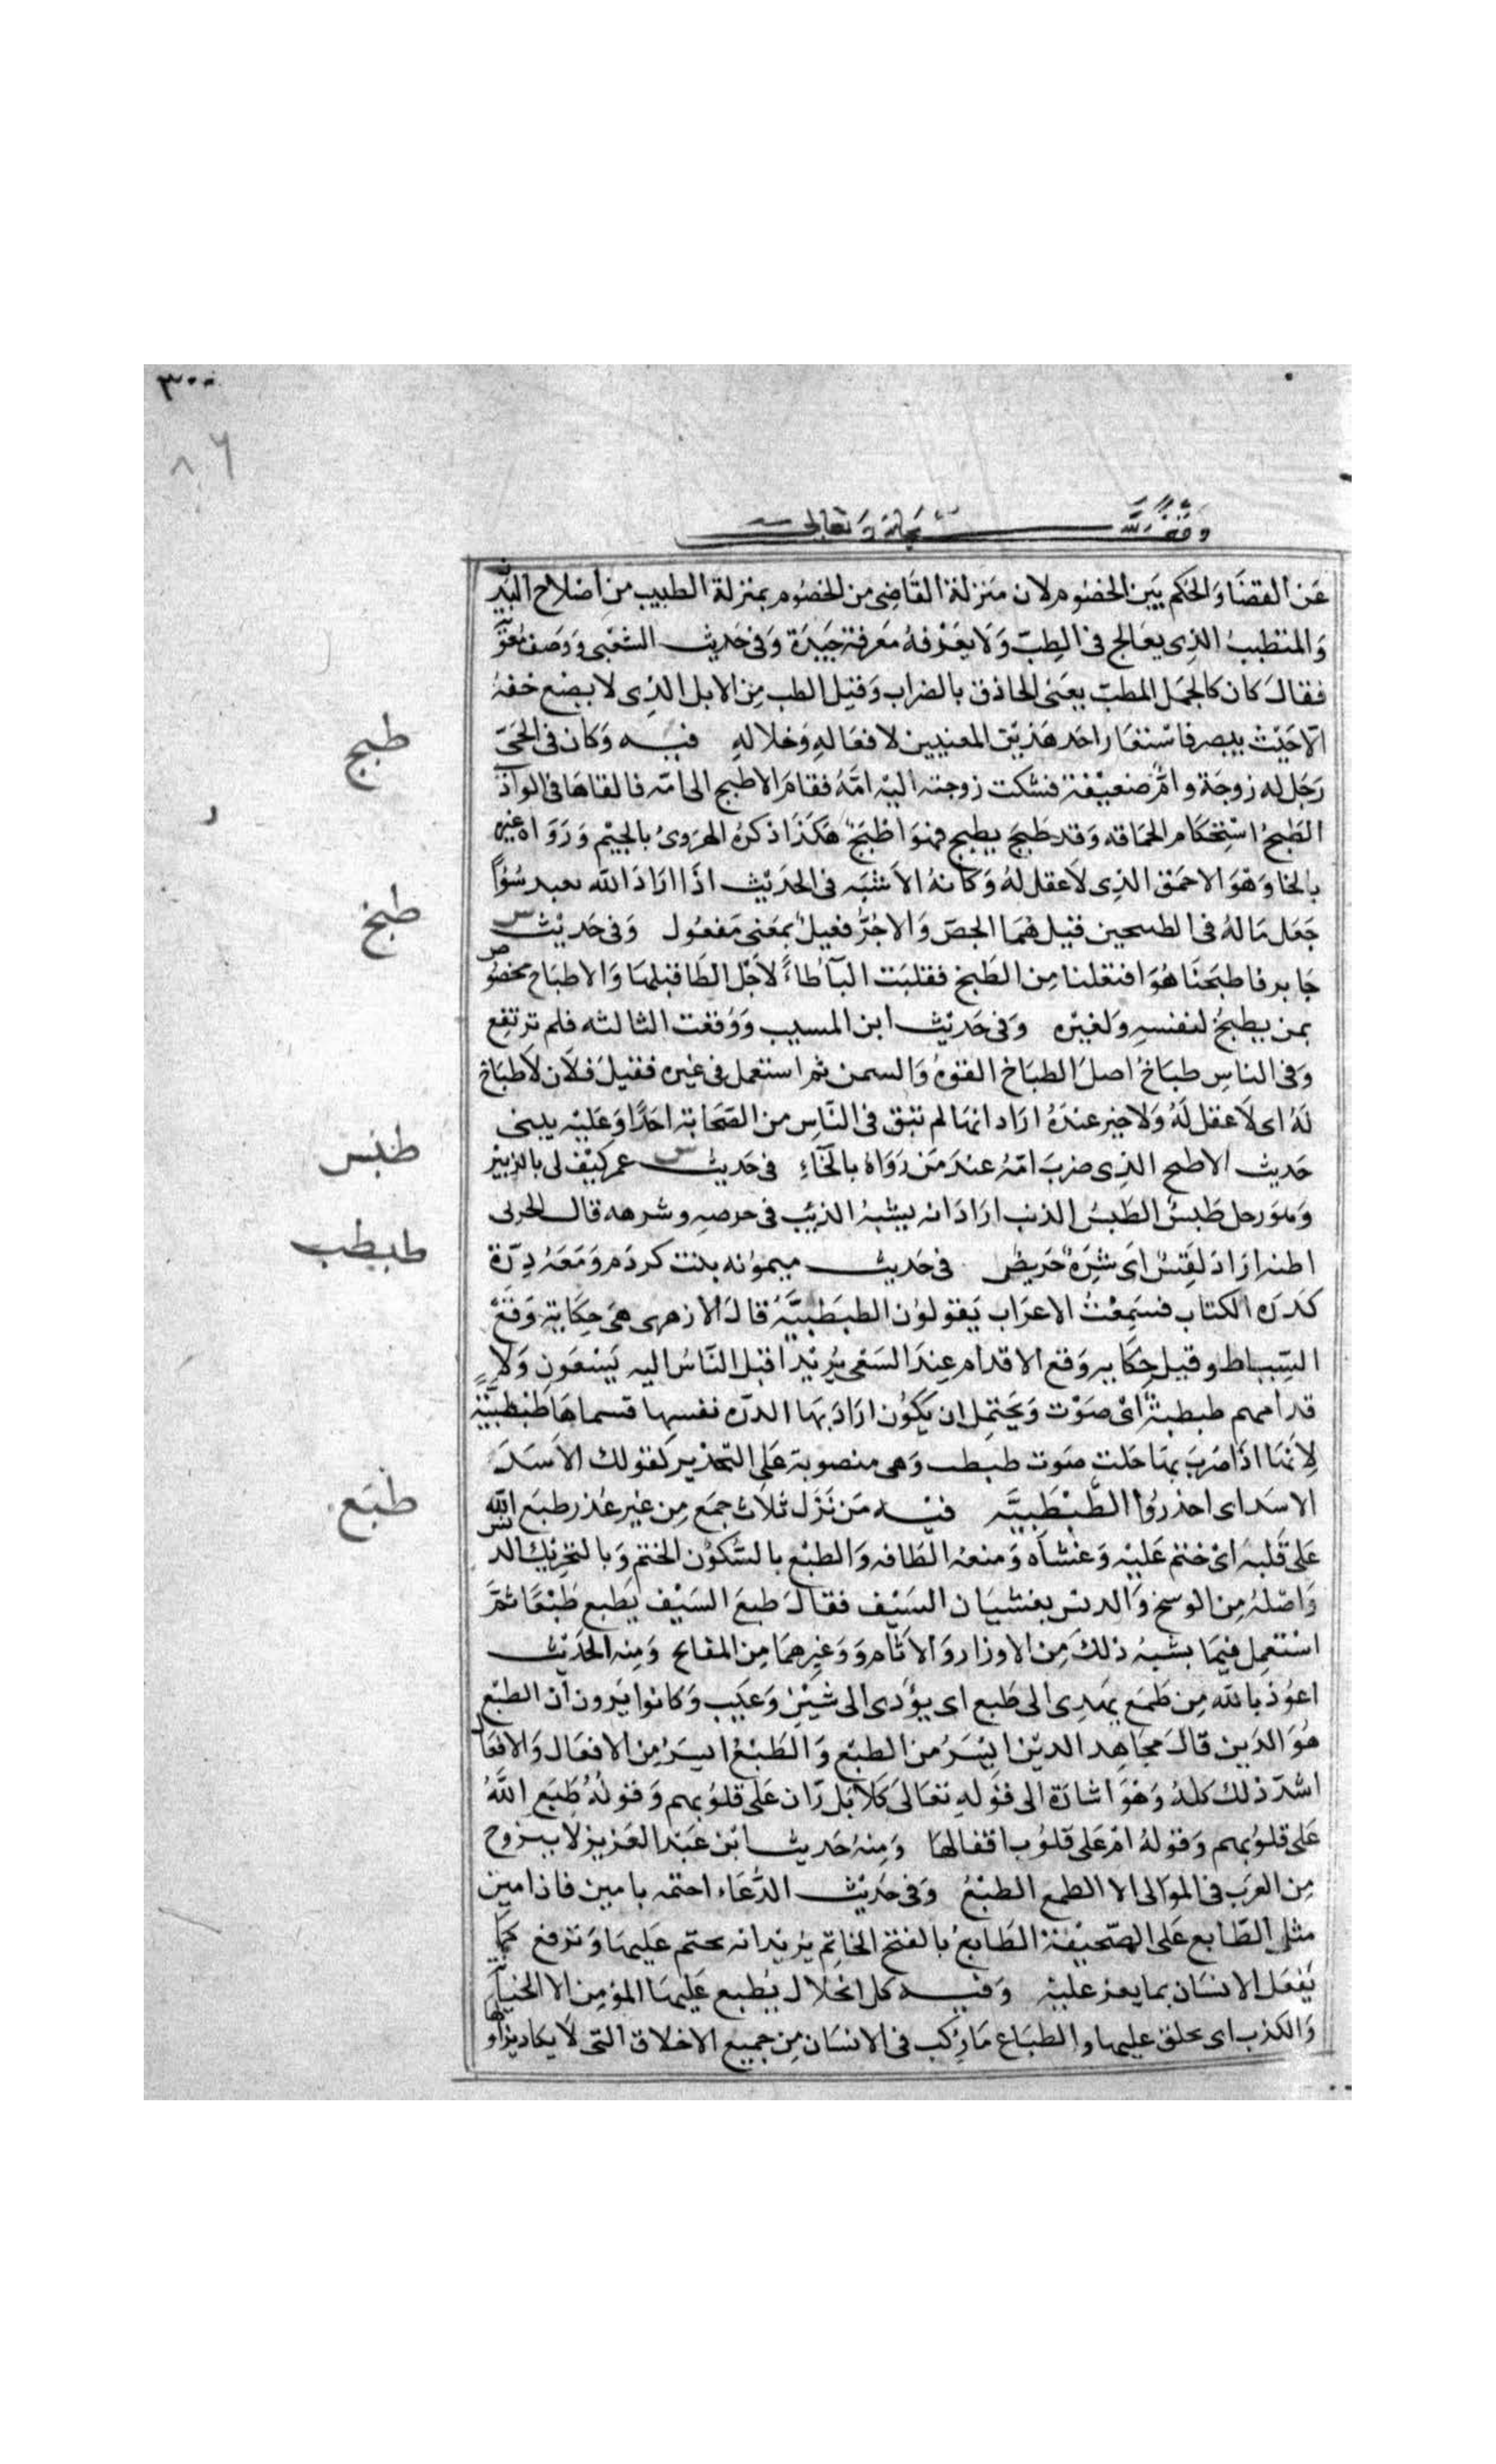 ٣٠٠
٨٦
وقف لله سبحانه وتعالى
عَن القضَا وَالحُكم بَين الخصُوم لان مَنزلة القَاضِى من الخصُوم بمنزلة الطبيب من اصْلاح البَدن
وَالمتطببُ الذِى يعَالج فى الطِبّ وَلَا يعَرفهُ مَعرفة جَيّدَة وَفى حَديث الشعْبى وَوَصَف مُعَوَ
فقالَ كان كالجمَل المطبّ يعَنى الحاذق بالضراب وَقيل الطب مِن الابل الذِى لا يضع خفهُ
الّا حَيْث يبصر فاسْتعَار احَد هَذيْن المعنيين لافعَاله وَخلاله فيه وَكان فى الحَىّ
رَجَل له زوجَة وامٌّ ضعيْفة فشكت زوجته اليْه امّهُ فقامَ الاطبج الى امّه فالقاهَا فى الوادى
الطَبَجُ اسْتحكام الحمَاقه وَقد طَبجَ يطبج فهوَ اطبَجُ هَكذَا ذكرهُ الهرَوىُ بالجيْم وَرَوَاه غيره
بالخا وَهوَ الاحمَق الذِى لَا عقل لهُ وَكانهُ الاشبَه فى الحَدَيْث اذَا ارَادَ الله بعبد سُوًا
جَعَل مَالهُ فى الطبيخين قيل هُمَا الجصّ وَالاجُرُّ فعيل بمَعْنى مَفعُول وَفى حَديْث
جَابر فاطبَخنَا هُوَ افتعَلنا مِن الطَبخ فقلبَت التآ طَاءً لاجْل الطَا قبلهَا وَالاطبَاخ مخصُوص
بمن يطبخُ لنفسهِ وَلغيْره وَفى حَديْث ابن المسيب وَوَقعَت الثالثه فلم ترتفع
وَفى الناسِ طبَاخ اصل الطبَاخ القوهُ وَالسمن ثم استعمل فى غيره فقيل فلَان لَا طبَاخ
لَهُ اى لَا عقل لَهُ وَلَا خيرَ عندَهُ ارَادَ انهَا لم تبق فى النّاسِ من الصّحَابة احَدًا وَعَليْه يبنى
حَديث الاطبح الذِى ضربَ امّهُ عندَ مَن رَوَاهُ بالخآءِ فى حَديْث عمر كيْف لى بالزبيْر
وَهوَ رجل طَبسُ الطَبسُ الذئب ارَادَ انه يشبهُ الذئب فى حرصهِ وشرهه قال الحربى
اظنه ارَادَ لَقِسُ اىَ شَرَهُ حَريصُ فى حَديث ميمونه بنت كردم وَمَعَهُ دِرّة
كدره الكتاب فسَمِعْتُ الاعرَاب يَقولوُن الطبطَبيَّهُ قالَ الازهرى هىَ حِكَاية وَقَعَ
السِّياط وقيل حِكَايه وَقع الاقدام عِندَ السَعْى يُريْد اقبل النّاسُ اليه يَسْعَون وَلَا
قدامهم طبطبةً اىْ صَوْت وَيحَتمِل ان يكوُن ارَادَ بَهَا الدرّه نفسهِا فسماهَا طبطبيَّة
لاِنهَا اذَا ضرِبَ بهَا حَلت صوَت طبطب وَهى منصوبة عَلى التحذير كقولك الاسَدَ
الاسَد اى احذرُوا الطَّبْطَبيَّه فيْه مَن تَرَل ثلَاث جمَع مِن غير عُذر طبَع الله
عَلى قَلبهِ اىْ ختم عَليْه وَغشاه وَمنعهُ الطافه وَالطبْع بالسُكوْن الختم وَبالتحَريك الدنس
وَاصْلهُ مِن الوسخ وَالدنس يغشيَان السَيْف فقالَ طبعَ السَيْف يَطبع طَبْعًا ثمّ
اسْتعمِل فيمَا يشبهُ ذلكَ مِن الاوزار وَالاثام وَوَغيرهمَا مِن المقابح وَمِنه الحَديْث
اعوُذ باللهَ مِن طَمَع يهَدِى الى طَبع اى يؤدى الى شيْن وَعَيب وَكانوا يَرون ان الطبْع
هُوَ الدَين قالَ مجَاهد الديْن ايْسَرُ من الطبْع وَالطَبْعُ ايسَرُ مِن الاقفال وَالاقفال
اشدّ ذلك كلهُ وَهُوَ اشارَة الى قوْلهِ تعَالىَ كَلَا بَل رَّان عَلى قلوُبهم وَقولُهُ طَبَع اللَّهُ
عَلى قلوُبهم وَقولهُ امْ عَلى قلوُب اقفالهَا وَمِنهُ حَديث ابْن عَبْد العَزيز لا يتزوح
مِن العرَب فى الموَالى الا الطمع الطبْعُ وَفى حَديْث الدُّعَاء اختمه بامين فان امين
مثل الطّابع عَلى الصّحيْفة الطَابعُ بالفتح الخاتِم يُريْد انه يختم عَليهَا وَترفع كما
يَفعَل الانسَان بما يعز عليْه وَفيه كل الخلال يُطبع عَليهَا المؤمِن الا الخيَانة
وَالكذب اى يخلق عليها والطبَاع مَا رُكب فى الانسَان مِن جميع الاخلاق التى لَا يكاد يزاولها
طبج
طبخ
طبَس
طبطب
طبَع